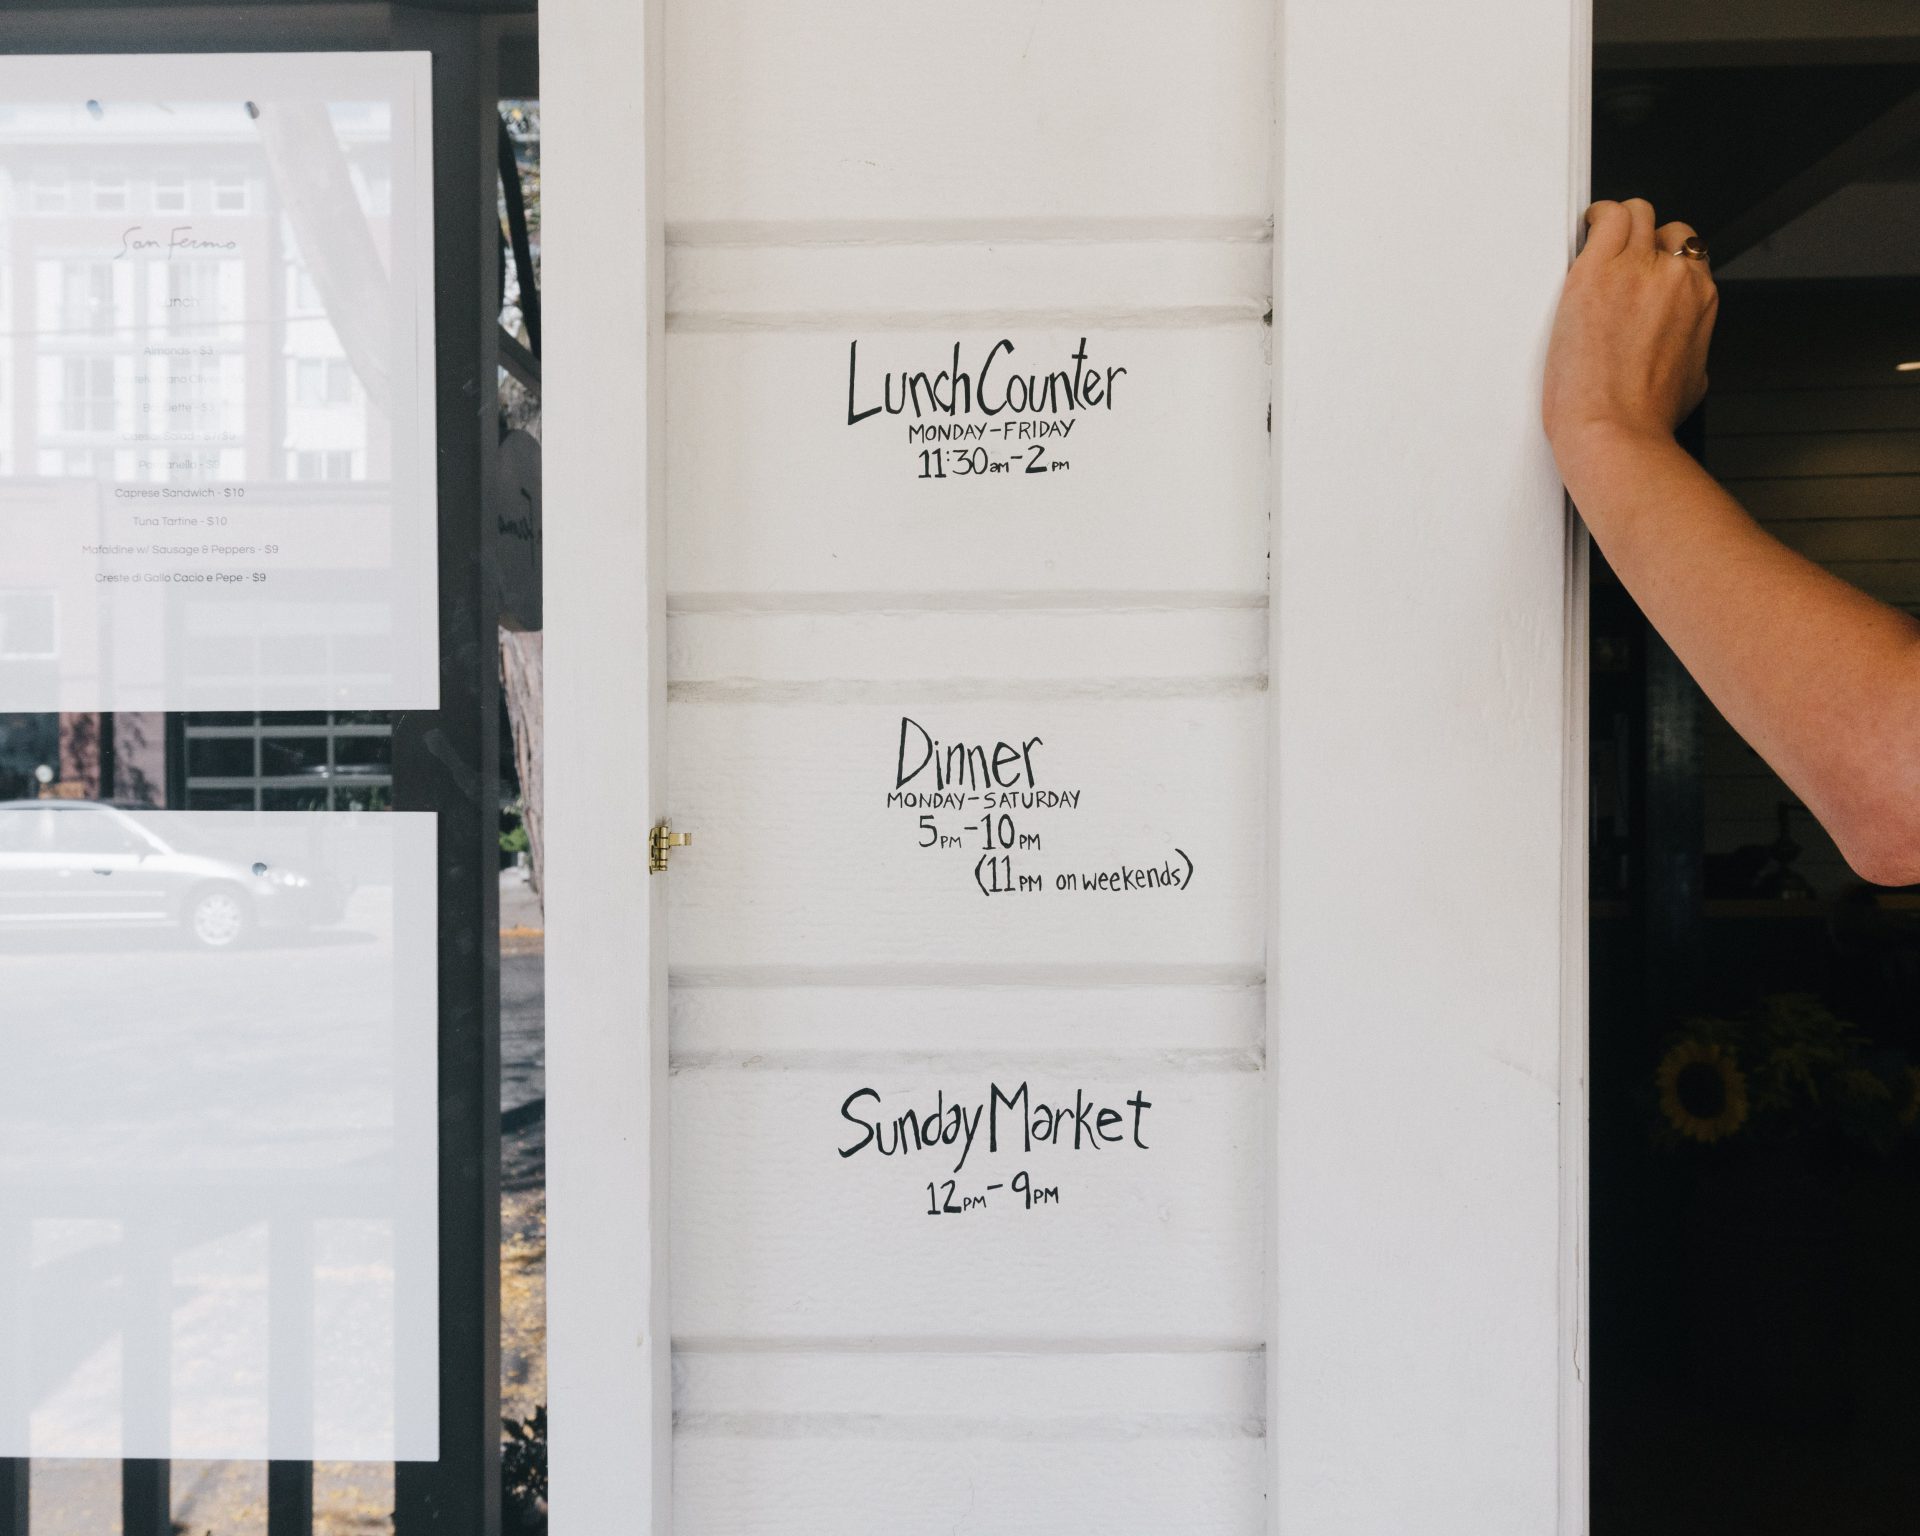 San Fermo
Lunch
Almonds - $3
Caesar Salad
Panzanella - $9
Caprese Sandwich - $10
Tuna Tartine - $10
Mafaldine w/ Sausage & Peppers - $9
Creste di Gallo Cacio e Pepe - $9
Lunch Counter
MONDAY-FRIDAY
11:30am-2PM
Dinner
MONDAY-SATURDAY
5PM-10PM
(11PM on weekends)
Sunday Market
12PM-9PM